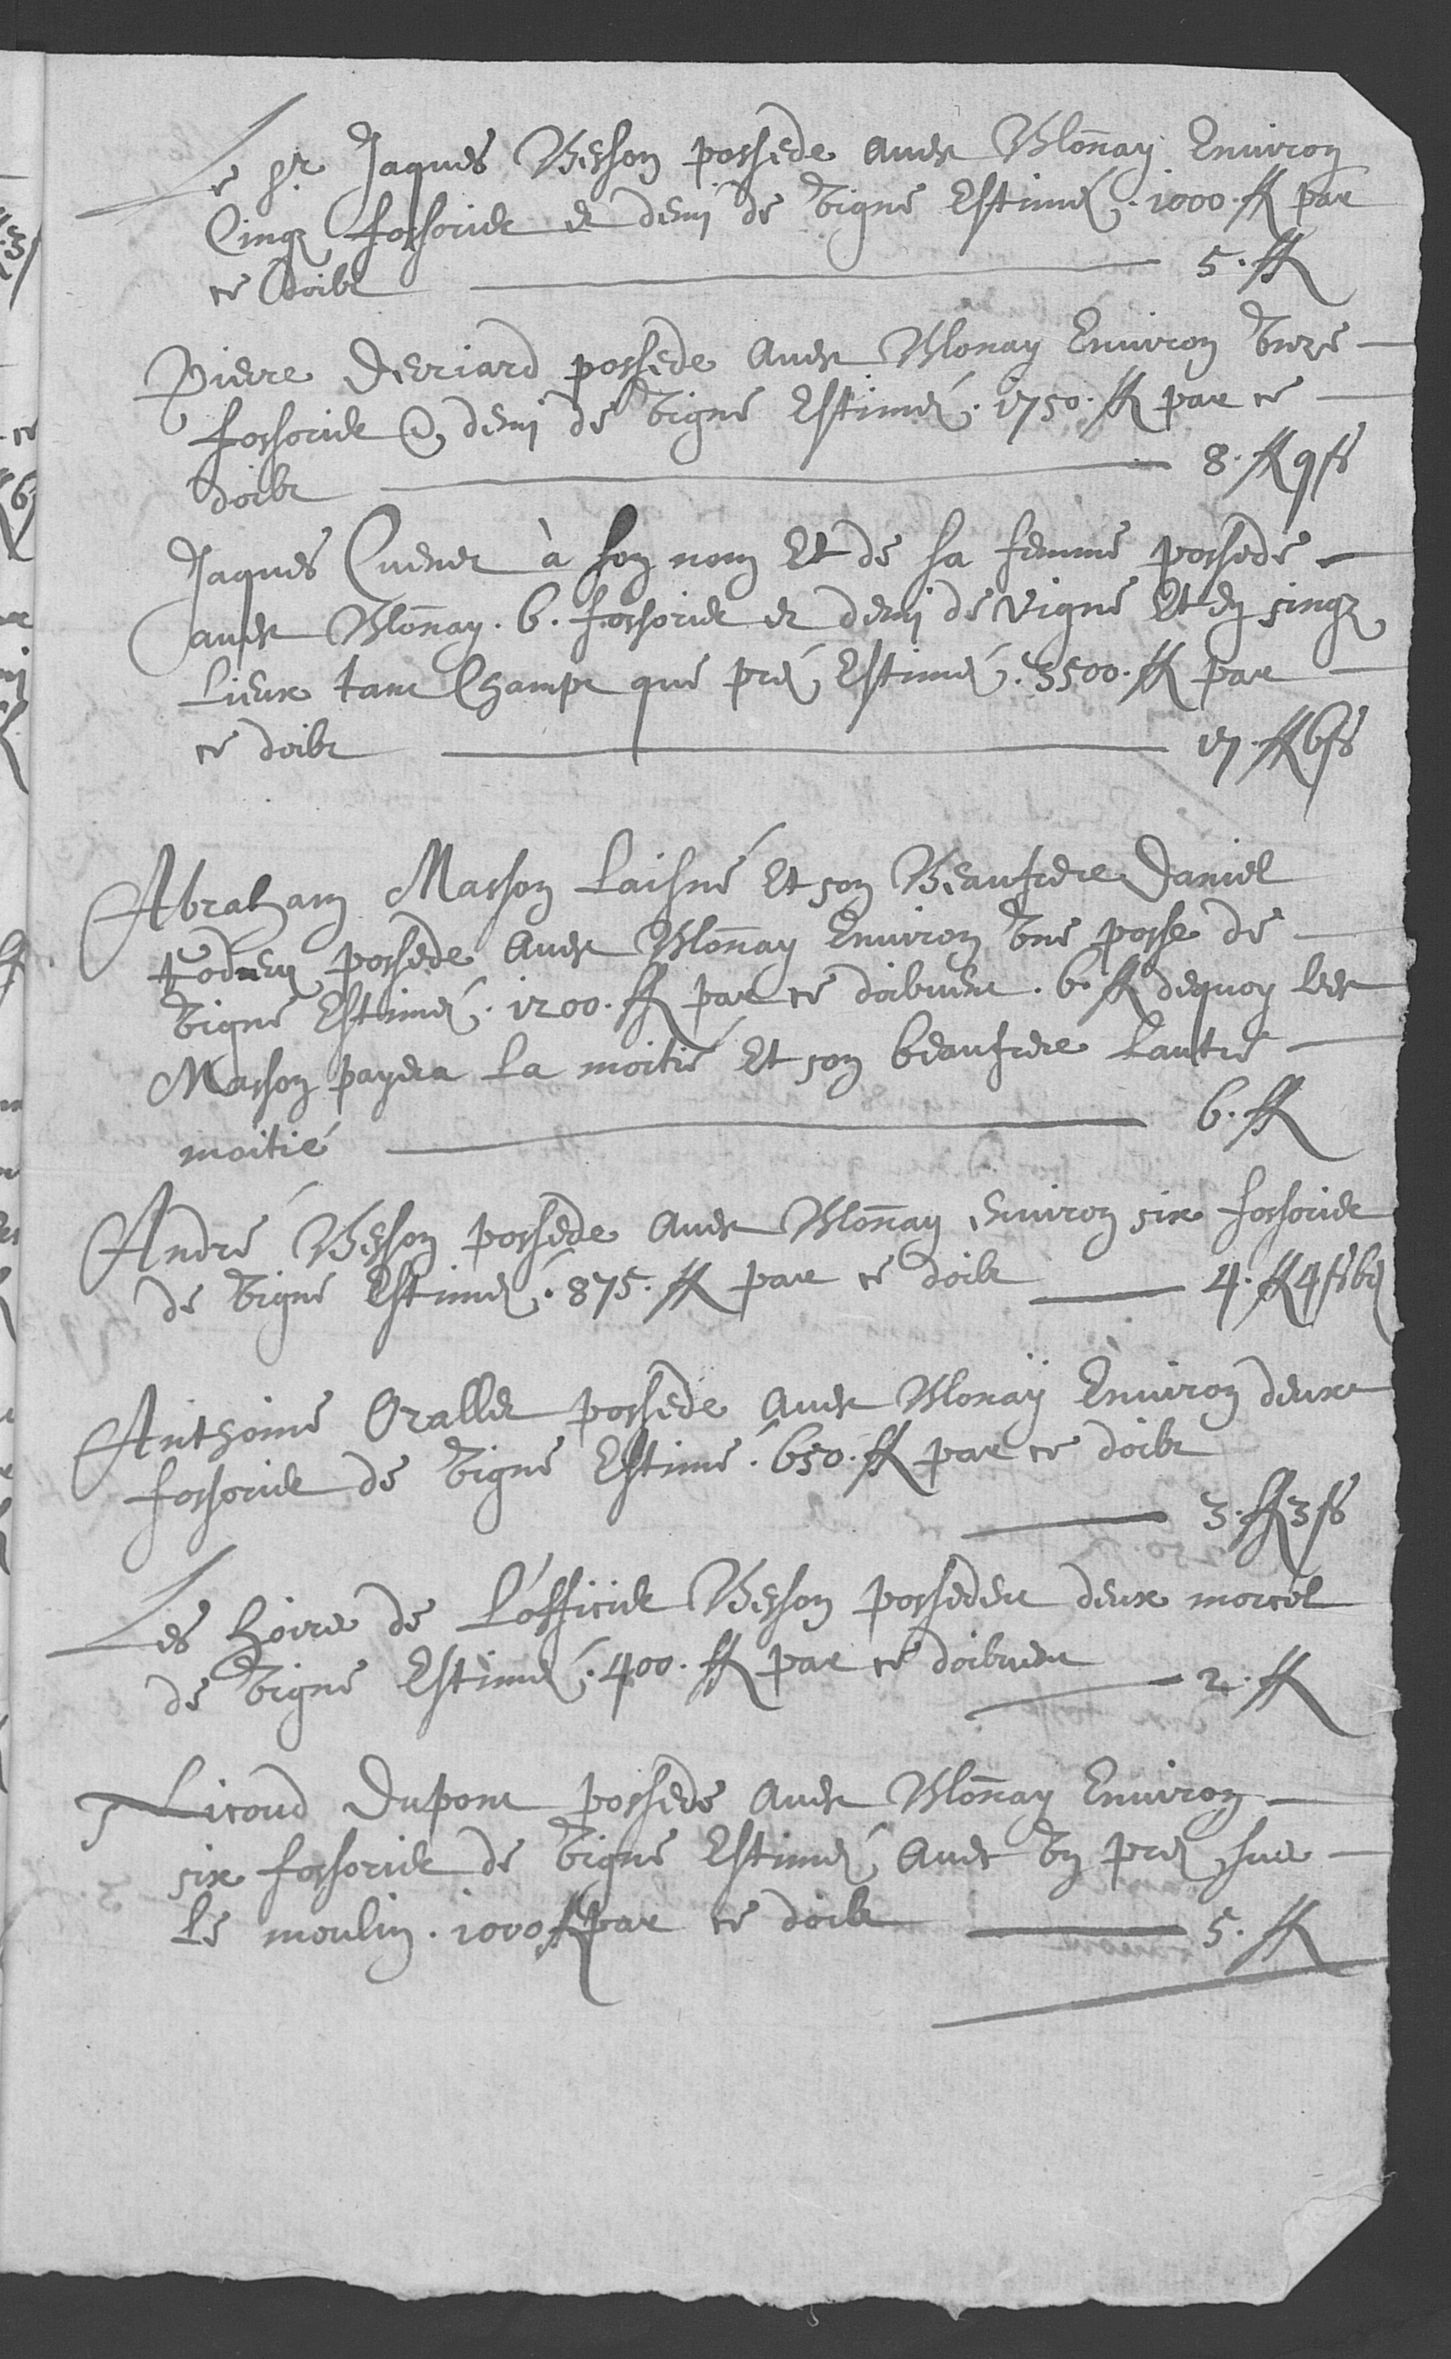 Le sr Jaques Besson possede avec Blonnay Environ
Cinq fossoriers et demi de Vigne Estimés . 1000 . ff par
ce doibt 5 . ff
Pierre Derriard possede avec Blonay Environ Unze
fossorier & demi de Vigne Estimés . 1750 . ff par ce
doibt 8 . ff 9 ss
Jaques Cuenet à son nom Et de sa femme possede
avec Blonnay . 6 . fossorier et demi de Vigne Et en singz
Lieux tant Champt que prés Estimés . 3500 . ff par
ce doibt 17 . ff 6 ss
Abraham Masson Laisné Et son Beaufrere Daniel
possede avec Blonnay Environ Une posse de
Vigne Estimés . 1200 . ff par ce doibvent . 6 . ff dequoy led
Masson payera La moitié Et son beaufrere Lautre
moitié 6 . ff
André Besson possede avec Blonnay environ six fossorier
de Vigne Estimés . 875 . ff par ce doibt 4 . ff 4 ss 6 d
Anthoine possede avec Blonaÿ Environ deux
fossorier de Vigne Estimé . 650 . ff par ce doibt
3 . ff 3 ss
Les hoirs de L'officier Besson possedent deux morcel
de Vigne Estimés . 400 . ff par ce doibvent 2 . ff
Dupont possede avec Blonnay Environ
six fossorier de Vigne Estimés avec Un prez sus
Le moulin . 1000 ff par ce doibt 5 . ff